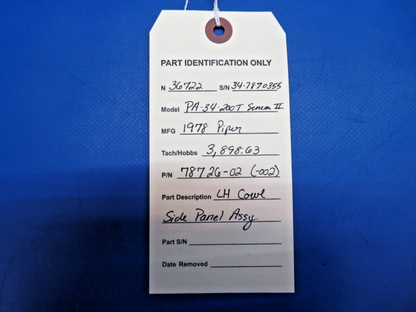 PART IDENTIFICATION ONLY
N 36722 S/N 34-7870355
Model PA-34-200T Seneca II
MFG 1978 Piper
Tach/Hobbs 3,898.63
P/N 78726-02 (-002)
Part Description LH Cowl
Side Panel Assy
Part S/N
Date Removed